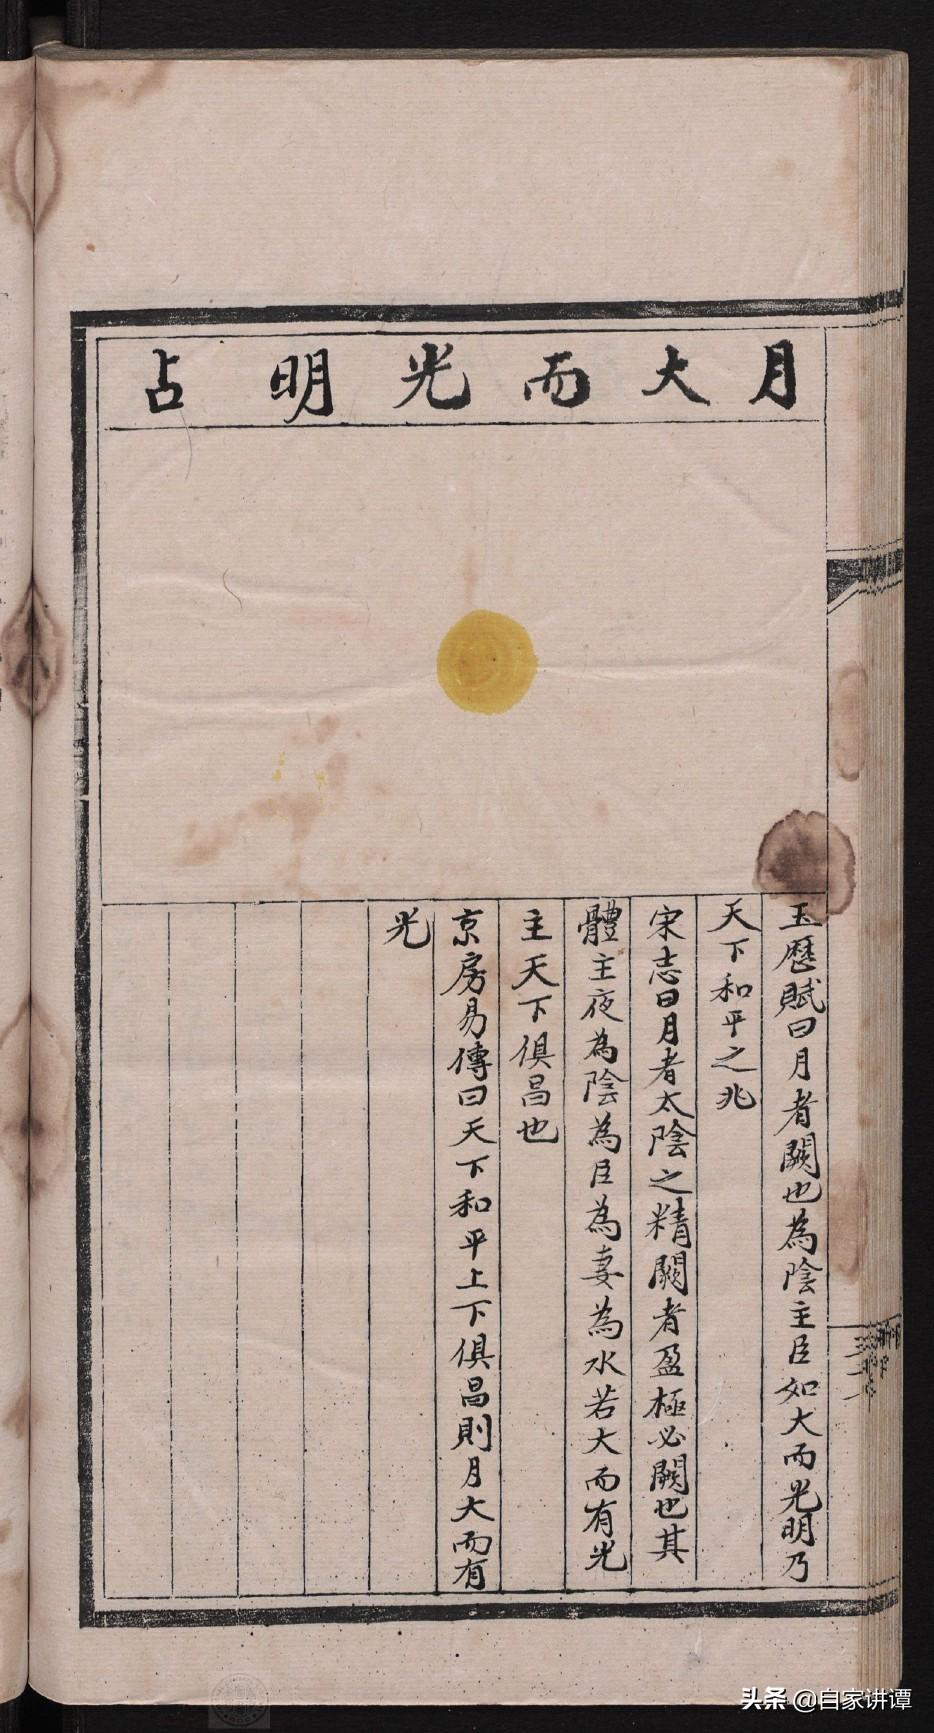 月大而光明占
玉歷賦曰月者闕也為陰主臣如大而光明乃
天下和平之兆
宋志曰月者太陰之精闕者盈極必闕也其
體主夜為陰為臣為妻為水若大而有光
主天下俱昌也
京房易傳曰天下和平上下俱昌則月大而有
光
头条 @自家讲谭